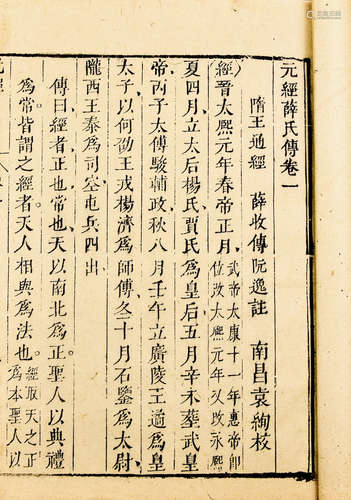 元經薛氏傳卷一
隋王通經 薛收傳 阮逸註 南昌袁絢校
經晉太熙元年春帝正月武帝太康十一年惠帝即
位改太熙元年又改永熙
夏四月立太后楊氏賈氏為皇后五月辛未葬武皇
帝丙子太傅駿輔政秋八月壬午立廣陵王遹為皇
太子以何劭王戎楊濟為師傅冬十月石鑒為太尉
隴西王泰為司空屯兵四出
傳曰經者正也常也天以南北為正聖人以典禮
為常皆謂之經者天人相與為法也經取天之正
為本聖人以